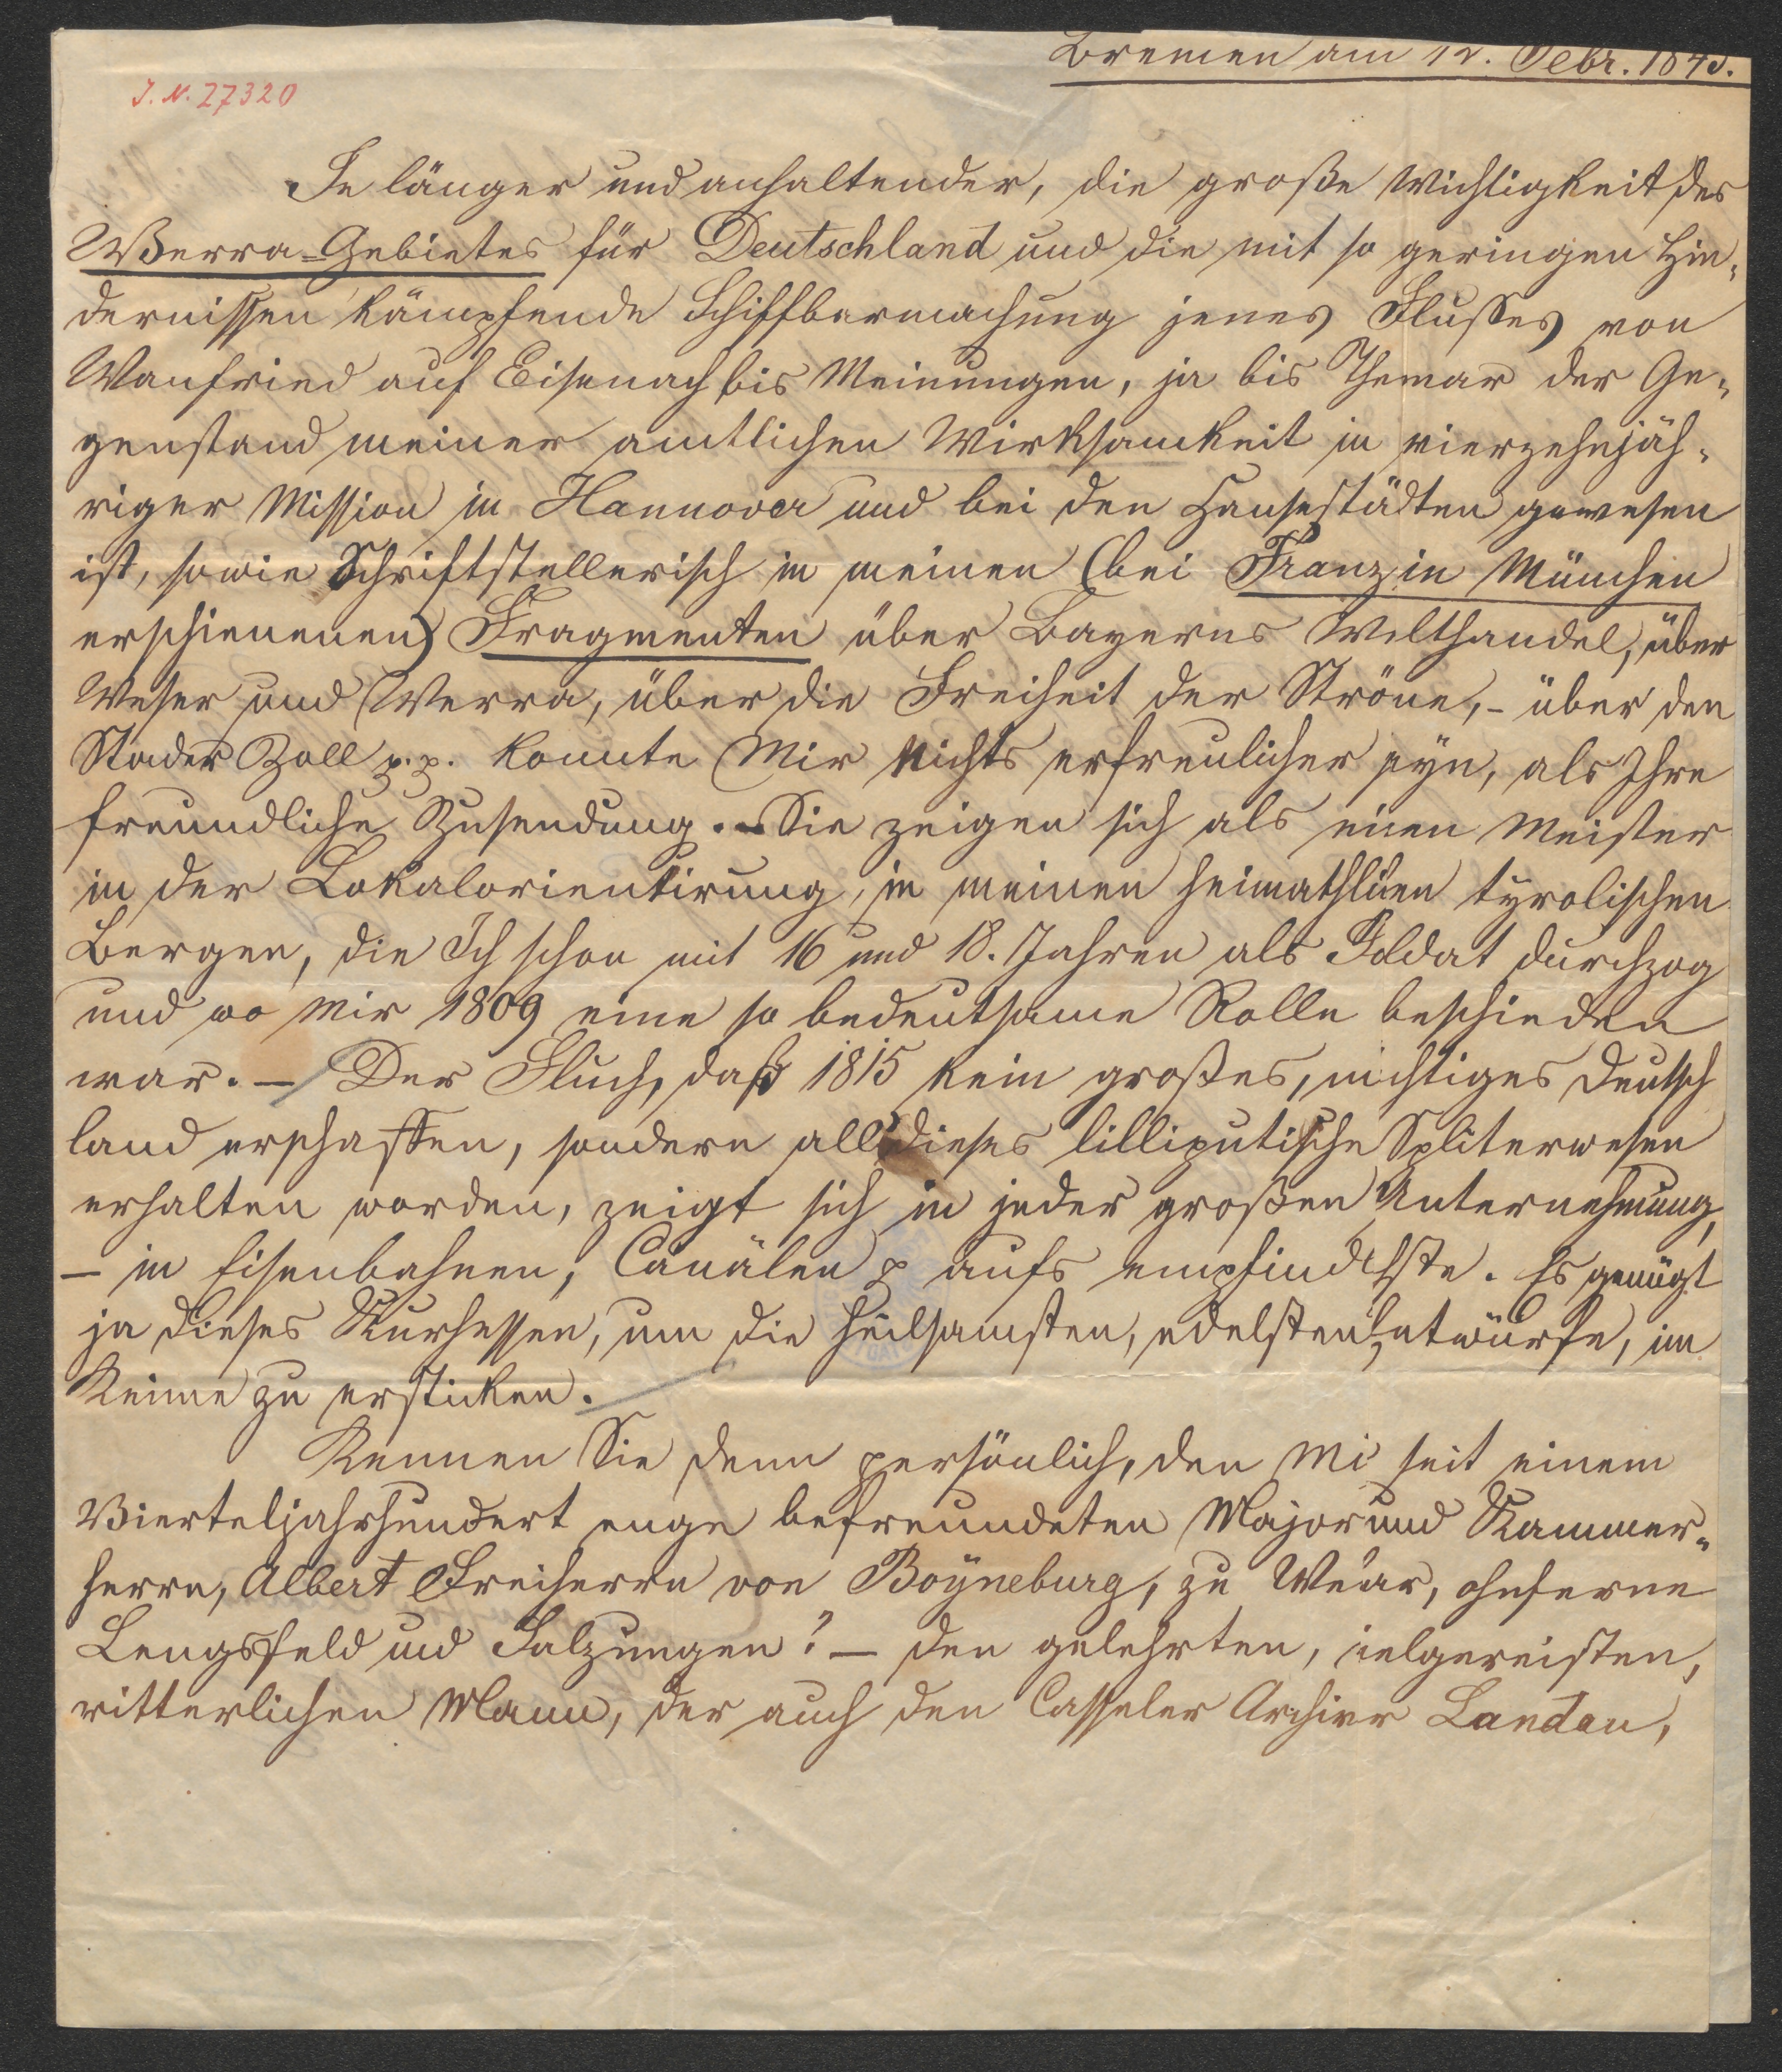 Bremen am 12. Febr. 1845.
J. N. 27320
Je länger und anhaltender, die große Wichtigkeit des
Werra-Gebietes für Deutschland und die mit so geringen Hin-
dernissen kämpfende Schiffbarmachung jenes Flusses von
Wanfried auf Eisenach bis Meinungen, ja bis Themar der Ge-
genstand meiner amtlichen Wirksamkeit in vierzehnjäh-
riger Mission in Hannover und bei den Hansestädten gewesen
ist, sowie Schriftstellerisch in meinen (bei Franz in München
erschienenen) Fragmenten über Bayerns Welthandel, über
Weser und Werra, über die Freiheit der Ströme, - über den
Stader Zoll p. p. konnte Mir Nichts erfreulicher seyn, als Ihre
freundliche Zusendung. - Sie zeigen sich als einen Meister
in der Lokalorientirung, in meinen heimathlichen tyrolischen
Bergen, die Ich schon mit 16 und 18. Jahren als Soldat durchzog
und wo Mir 1809 eine so bedeutsame Rolle beschieden
war. - Der Fluch, daß 1815 kein großes, mächtiges Deutsch
land erschaffen, sondern all dieses lilliputische Spliterwesen
erhalten worden, zeigt sich in jeder großen Unternehmung,
- in Eisenbahnen, Canälen p aufs empfindlichste. Es genügt
ja dieses Kurhessen, um die heilsamsten, edelsten Entwürfe, im
Keime zu ersticken.
Kennen Sie denn persönlich, den Mir seit einem
Vierteljahrhundert enge befreundeten Major und Kammer-
herrn, Albert Freiherrn von Boyneburg, zu Weilar, ohnferne
Lengsfeld und Salzungen? - den gelehrten, vielgereisten,
ritterlichen Mann, der auch den Casseler Archivar Landau,